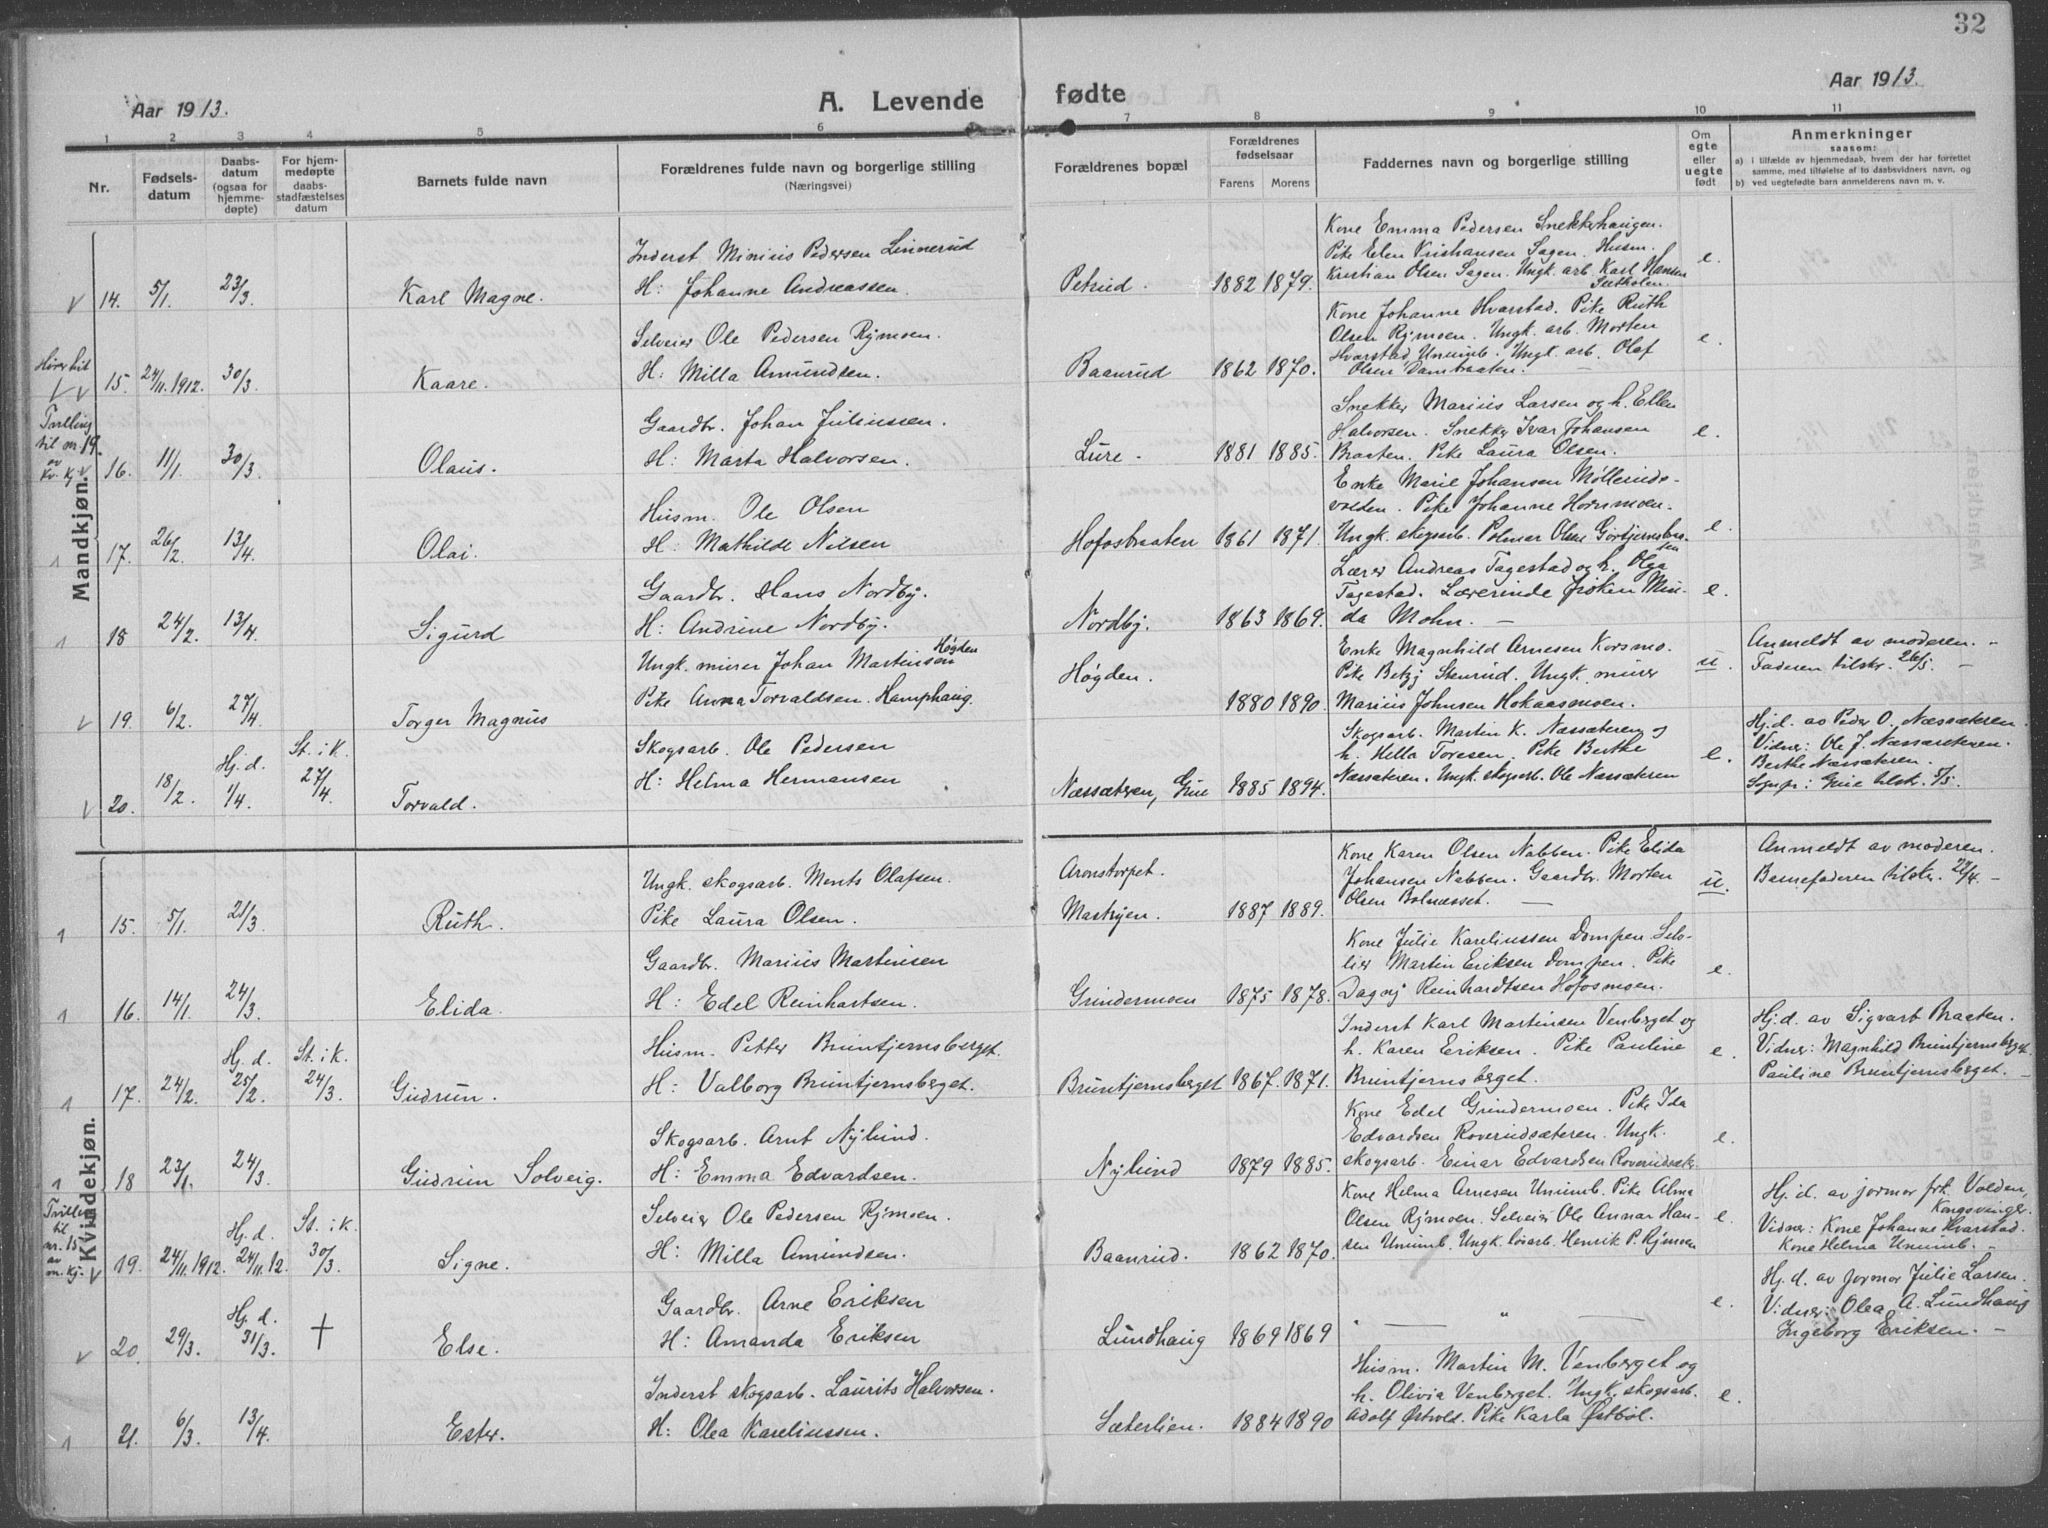 32
Aar 1913.
A. Levende fødte
Aar 1913.
1 2 3 4 5 6 7 8 9 10 11
Nr.
Fødselsdatum
Daabsdatum (ogsaa for hjemmedøpte)
For hjemmedøpte daabsstadfæstelses datum
Barnets fulde navn
Forældrenes fulde navn og borgerlige stilling
(Næringsvei)
Forældrenes bopæl
Forældrenes fødselsaar
Farens Morens
Faddernes navn og borgerlige stilling
Om egte eller uegte født
Anmerkninger
saasom:
a) i tilfælde av hjemmedaab, hvem der har forrettet
samme, med tilføielse af to daabsvidners navn, og
b) ved uegtefødte barn anmelderens navn m. v.
Mandkjøn.
14. 5/1. 23/3 Karl Magne.
Inderst Minius Pedersen Linnerud
H: Johanne Andreassen.
Petrud. 1882 1879.
Kone Emma Pedersen Snekkerhaugen.
Pike Elen Kristiansen Sagen. Husm.
Kristian Olsen Sagen. Ungk. arb. Karl Hansen
e.
15. 24/11.1912. 30/3 Kaare.
Selveier Ole Pedersen Rymoen.
H: Milla Amundsen.
Baanrud 1862 1870.
Kone Johanne Hvarstad. Pike Ruth
Olsen Rymoen. Ungk. arb. Morten
Hvarstad, Unumb. Ungk. arb. Olaf
Olsen Dambraaten.
e.
Tvilling
til nr. 19
av
Kv. kj.
16. 11/1. 30/3 Olaus.
Gaardbr. Johan Juliussen.
H: Marta Halvorsen.
Lure. 1881 1885.
Snekker Marius Larsen og h. Ellen
Halvorsen. Snekker Ivar Johansen
Braaten. Pike Laura Olsen.
e.
17. 26/2 13/4. Olai.
Husm. Ole Olsen
H: Mathilde Nilsen
Hofosbraaten 1861 1871.
Enke Marie Johansen Møllerudsvolden. Pike Johanne Hornmoen.
Ungk. skogsarb. Polmar Olsen
e.
18 24/2. 13/4. Sigurd
Gaardbr. Hans Nordby.
H: Andrine Nordby.
Nordby. 1863 1869.
Lærer Andreas Tagestad og h. Olga
Tagestad. Lærerinde frøken Minda Mohn. —
e.
19. 6/2. 27/4. Torger Magnus
Ungk. murer Johan Martinsen Høgden
Pike Anna Torvaldsen. Hamphaug.
Høgden.
1880 1890.
Enke Magnhild Arnesen Korsmo.
Pike Betzy Stenrud. Ungk. murer
Marius Johnsen Hokaasmoen.
u.
Anmeldt av moderen. —
Faderen tilskr. 26/5. —
20. 18/2. Hj.d. 1/4. St. i K. 27/4. Torvald.
Skogsarb. Ole Pedersen
H: Helma Hermansen
Næssæteren, Grue 1885 1894.
Skogsarb. Martin K. Næssæteren og
h. Hella Toresen. Pike Berthe
Næssæteren. Ungk. skogsarb. Ole Næssæteren
e.
Hj.d. av Peder O. Næssæteren.
Vidner: Ole J. Næssæteren.
Berthe Næssæteren.
Sognepr: Grue tilskr. 5/5.
Kvindekjøn.
15. 5/1. 21/3 Ruth.
Ungk. skogsarb. Ments Olafsen.
Pike Laura Olsen.
Aronstorpet.
Mastryen. 1887 1889.
Kone Karen Olsen Nabben. Pike Elida
Johansen Nabben. Gaardbr. Morten
Olsen Bolnæsset. —
u.
Anmeldt av moderen.
Barnefaderen tilskr. 22/4. —
16. 14/1. 24/3. Elida.
Gaardbr. Marius Martinsen
H: Edel Reinhartsen.
Grindermoen 1875 1878.
Kone Julie Kareliussen Dompen. Selveier Martin Eriksen Dompen. Pike
Dagny Reinhardtsen Hofosmoen.
e.
17. 24/2. Hj.d. 25/2. St. i K. 24/3. Gudrun.
Husm. Petter Bruntjernsberget.
H: Valborg Bruntjernsberget.
Bruntjernsberget 1867. 1871.
Inderst Karl Martinsen Venberget og
h. Karen Eriksen. Pike Pauline
Bruntjernsberget.
e.
Hj.d. av Sigvart Braaten.
Vidner: Magnhild Bruntjernsberget.
Pauline Bruntjernsberget. —
18 23/1. 24/3. Gudrun Solveig.
Skogsarb. Arnt Nylund.
H: Emma Edvardsen.
Nylund 1879 1885.
Kone Edel Grindermoen. Pike Ida
Edvardsen Roverudsæteren. Ungk.
skogsarb. Einar Edvardsen Roverudsæt.
e.
Tvilling
til
nr. 15
av
m. kj.
19. 24/11.1912. Hj.d. 24/11.12. St. i K. 30/3. Signe.
Selveier Ole Pedersen Rymoen.
H: Milla Amundsen.
Baanrud. 1862 1870.
Kone Helma Arnesen Unumb. Pike Alma
Olsen Rymoen. Selveier Ole Annar Hansen Unumb. Ungk. løsarb. Henrik P. Rymoen
e.
Hj.d. av jormor frk. Volden, Kongsvinger.
Vidner: Kone Johanne Hvarstad.
Kone Helma Unumb. —
20. 29/3. Hj.d. 31/3. † Else.
Gaardbr. Arne Eriksen
H: Amanda Eriksen
Lundhaug 1869 1869
" — " —
e.
Hj.d. av jormor Julie Larsen.
Vidner: Olea A. Lundhaug
Ingeborg Eriksen. —
21. 6/3. 13/4. Ester.
Inderst skogsarb. Laurits Halvorsen.
H: Olea Kareliussen.
Sæterlien. 1884 1890
Husm. Martin M. Venberget og
h. Olivia Venberget. Ungk. skogsarb.
Adolf Østvold. Pike Karla Østbøl.
e.